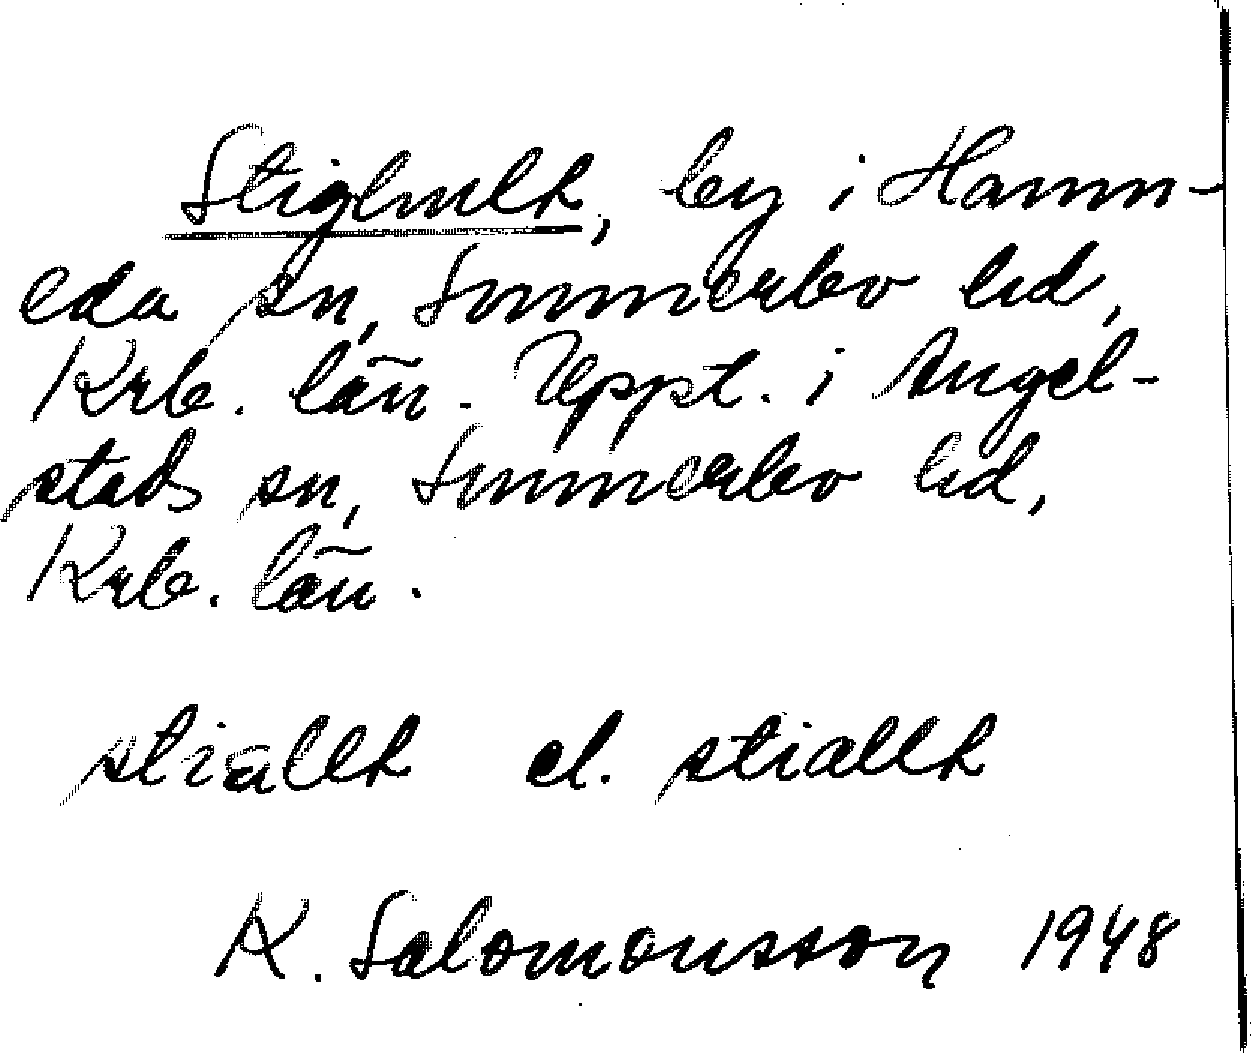 Stighult, by i Hamn-
eda sn, Sunnerbo hd,
Krb. län. Uppt. i Angel-
stads sn, Sunnerbo hd,
Krb. län.
stiallt el. stiallt
K. Salomonsson 1948